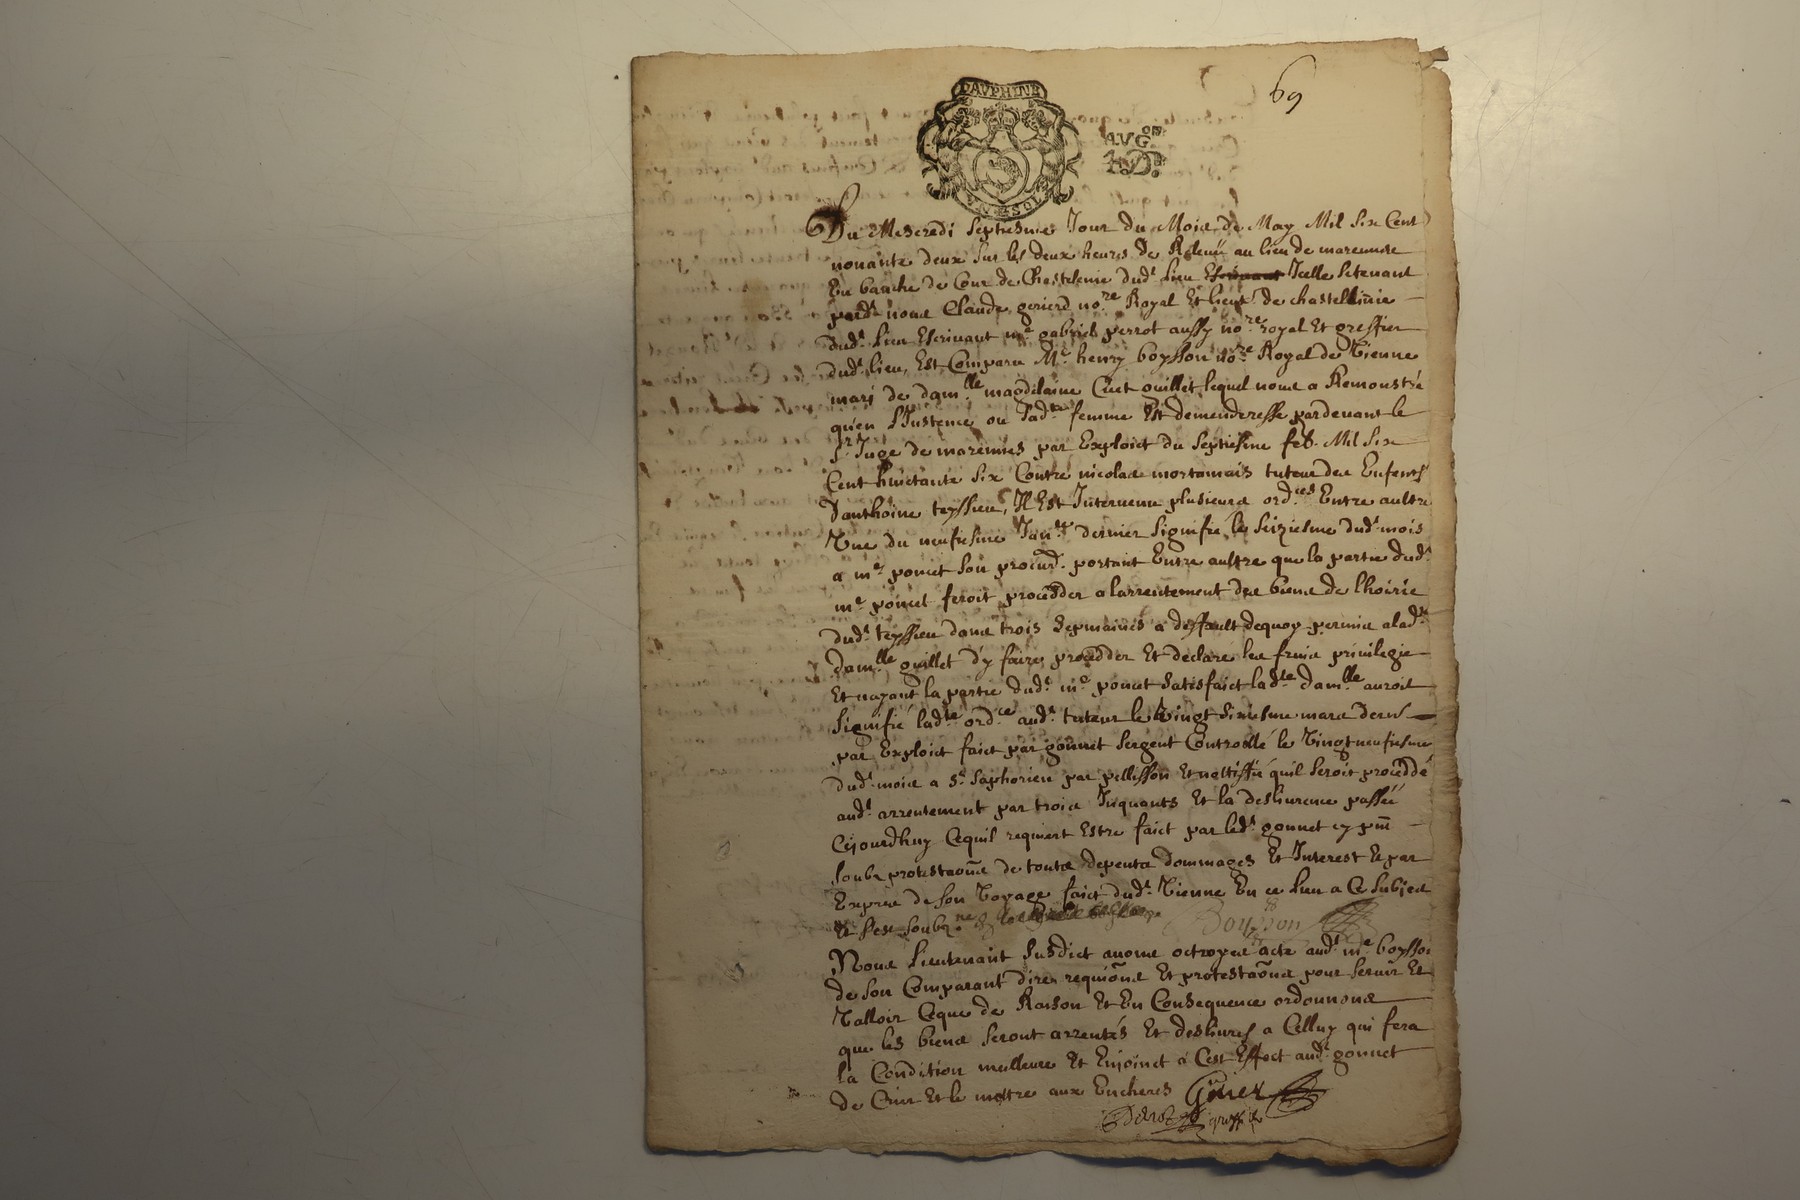 69
DAUPHINE
AUG.on
1.D.8
UN SOL
Du Mercredi septiesme Jour du Mois de May Mil six Cent
nonante deux sur les deux heures de Rellevée au lieu de marennes
En banche de Cour de Chastelenie dud.t lieu Icelle se tenant
pard.t nous Claude no.re Royal Et lieut.t de chastellenie
dud.t lieu Escrivant m.e gabriel perrot aussy no.re royal Et greffier
dud.t lieu, Est Comparu M.e henry boysson no.re Royal de Vienne
mari de dam.lle magdelaine ouillet, lequel nous a Remonstré
qu'en l'Instence ou lad.te femme Est demenderesse pardevant le
s.r Juge de marennes par Exploict du septiesme feb. Mil Six
Cent huictante six Contre nicolas mortamais tuteur des Enfents
d'anthoine teyssieu, Il Est Intervenu plusieurs ord.ces Entre aultre
Une du neufiesme Jan.er dernier signifié le seiziesme dud.t mois
a m.e poncet son procur.r portant Entre aultre que la partie dud.t
m.e poncet feroit procedder a larrentement des biens de lhoirie
dud.t teyssieu dans trois sepmaines a deffault dequoy permis a lad.te
dam.lle ouillet d'y faire procedder Et declare les fruis privilegie
Et nayant la partie dud.t m.e poncet satisfaict lad.te dam.lle auroit
signifié lad.te ord.ce aud.t tuteur le Vingt sixiesme mars dern.r
par Exploict faict par gonnet sergent Controollé le Vingtneufiesme
dud.t mois a S.t Saphorien par pellisson Et nottiffié quil seroit procéddé
aud.t arrentement par trois Inquants Et la deslivrence passée
Cejourdhuy Cequil requiert Estre faict par led.t gonnet cy pnt
soubz protestaons de touts depents dommages Et Interest Et par
Exprès de son Voyage faict dud.t Vienne En ce lieu a Ce Subject
Et s'est soub.ne Boysson
Nous Lieutenant Susdict avons octroyé acte aud.t m.e boysson
de son Comparant dires requi.ons Et protestaons pour servir Et
Valloir Ceque de Raison Et En Consequence ordonnons
que les biens seront arrentés Et deslivrés a Celluy qui fera
la Condition meilleure Et Enjoinct à C'est Effect aud.t gonnet
de Crier Et le mettre aux Encheres
Perrot greff.r